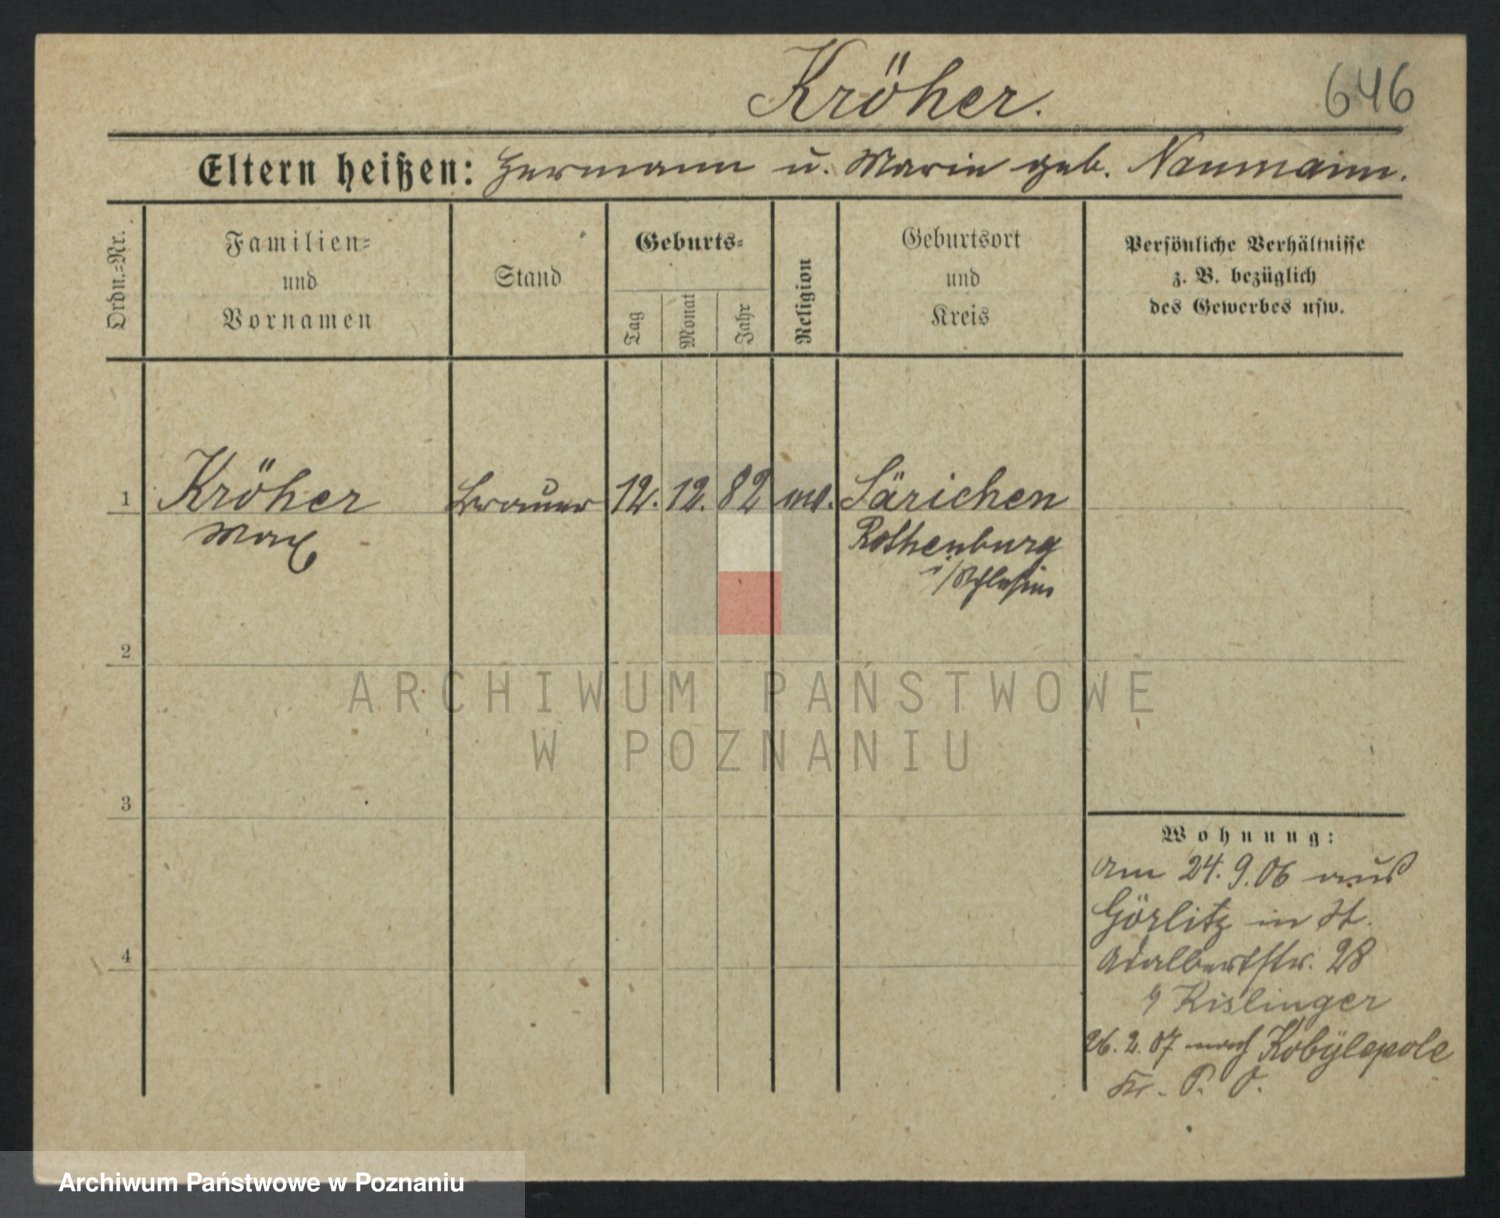 Kröher.
646
Eltern heißen: Hermann u. Marie geb. Naumann.
Ordn.-Nr.
Familien-
und
Vornamen
Stand
Geburts-
Tag
Monat
Jahr
Religion
Geburtsort
und
Kreis
Persönliche Verhältnisse
z. B. bezüglich
des Gewerbes usw.
1 Kröher Brauer 12. 12. 82 Särichen
Max Rothenburg
i/Schlesien
2
3
4
Wohnung:
Am 24. 9. 06 aus
Görlitz in St.
Adalbertstr. 28
Kislinger
26. 2. 07 nach Kobylepole
Kr. P. O.
ARCHIWUM PAŃSTWOWE
W POZNANIU
Archiwum Państwowe w Poznaniu